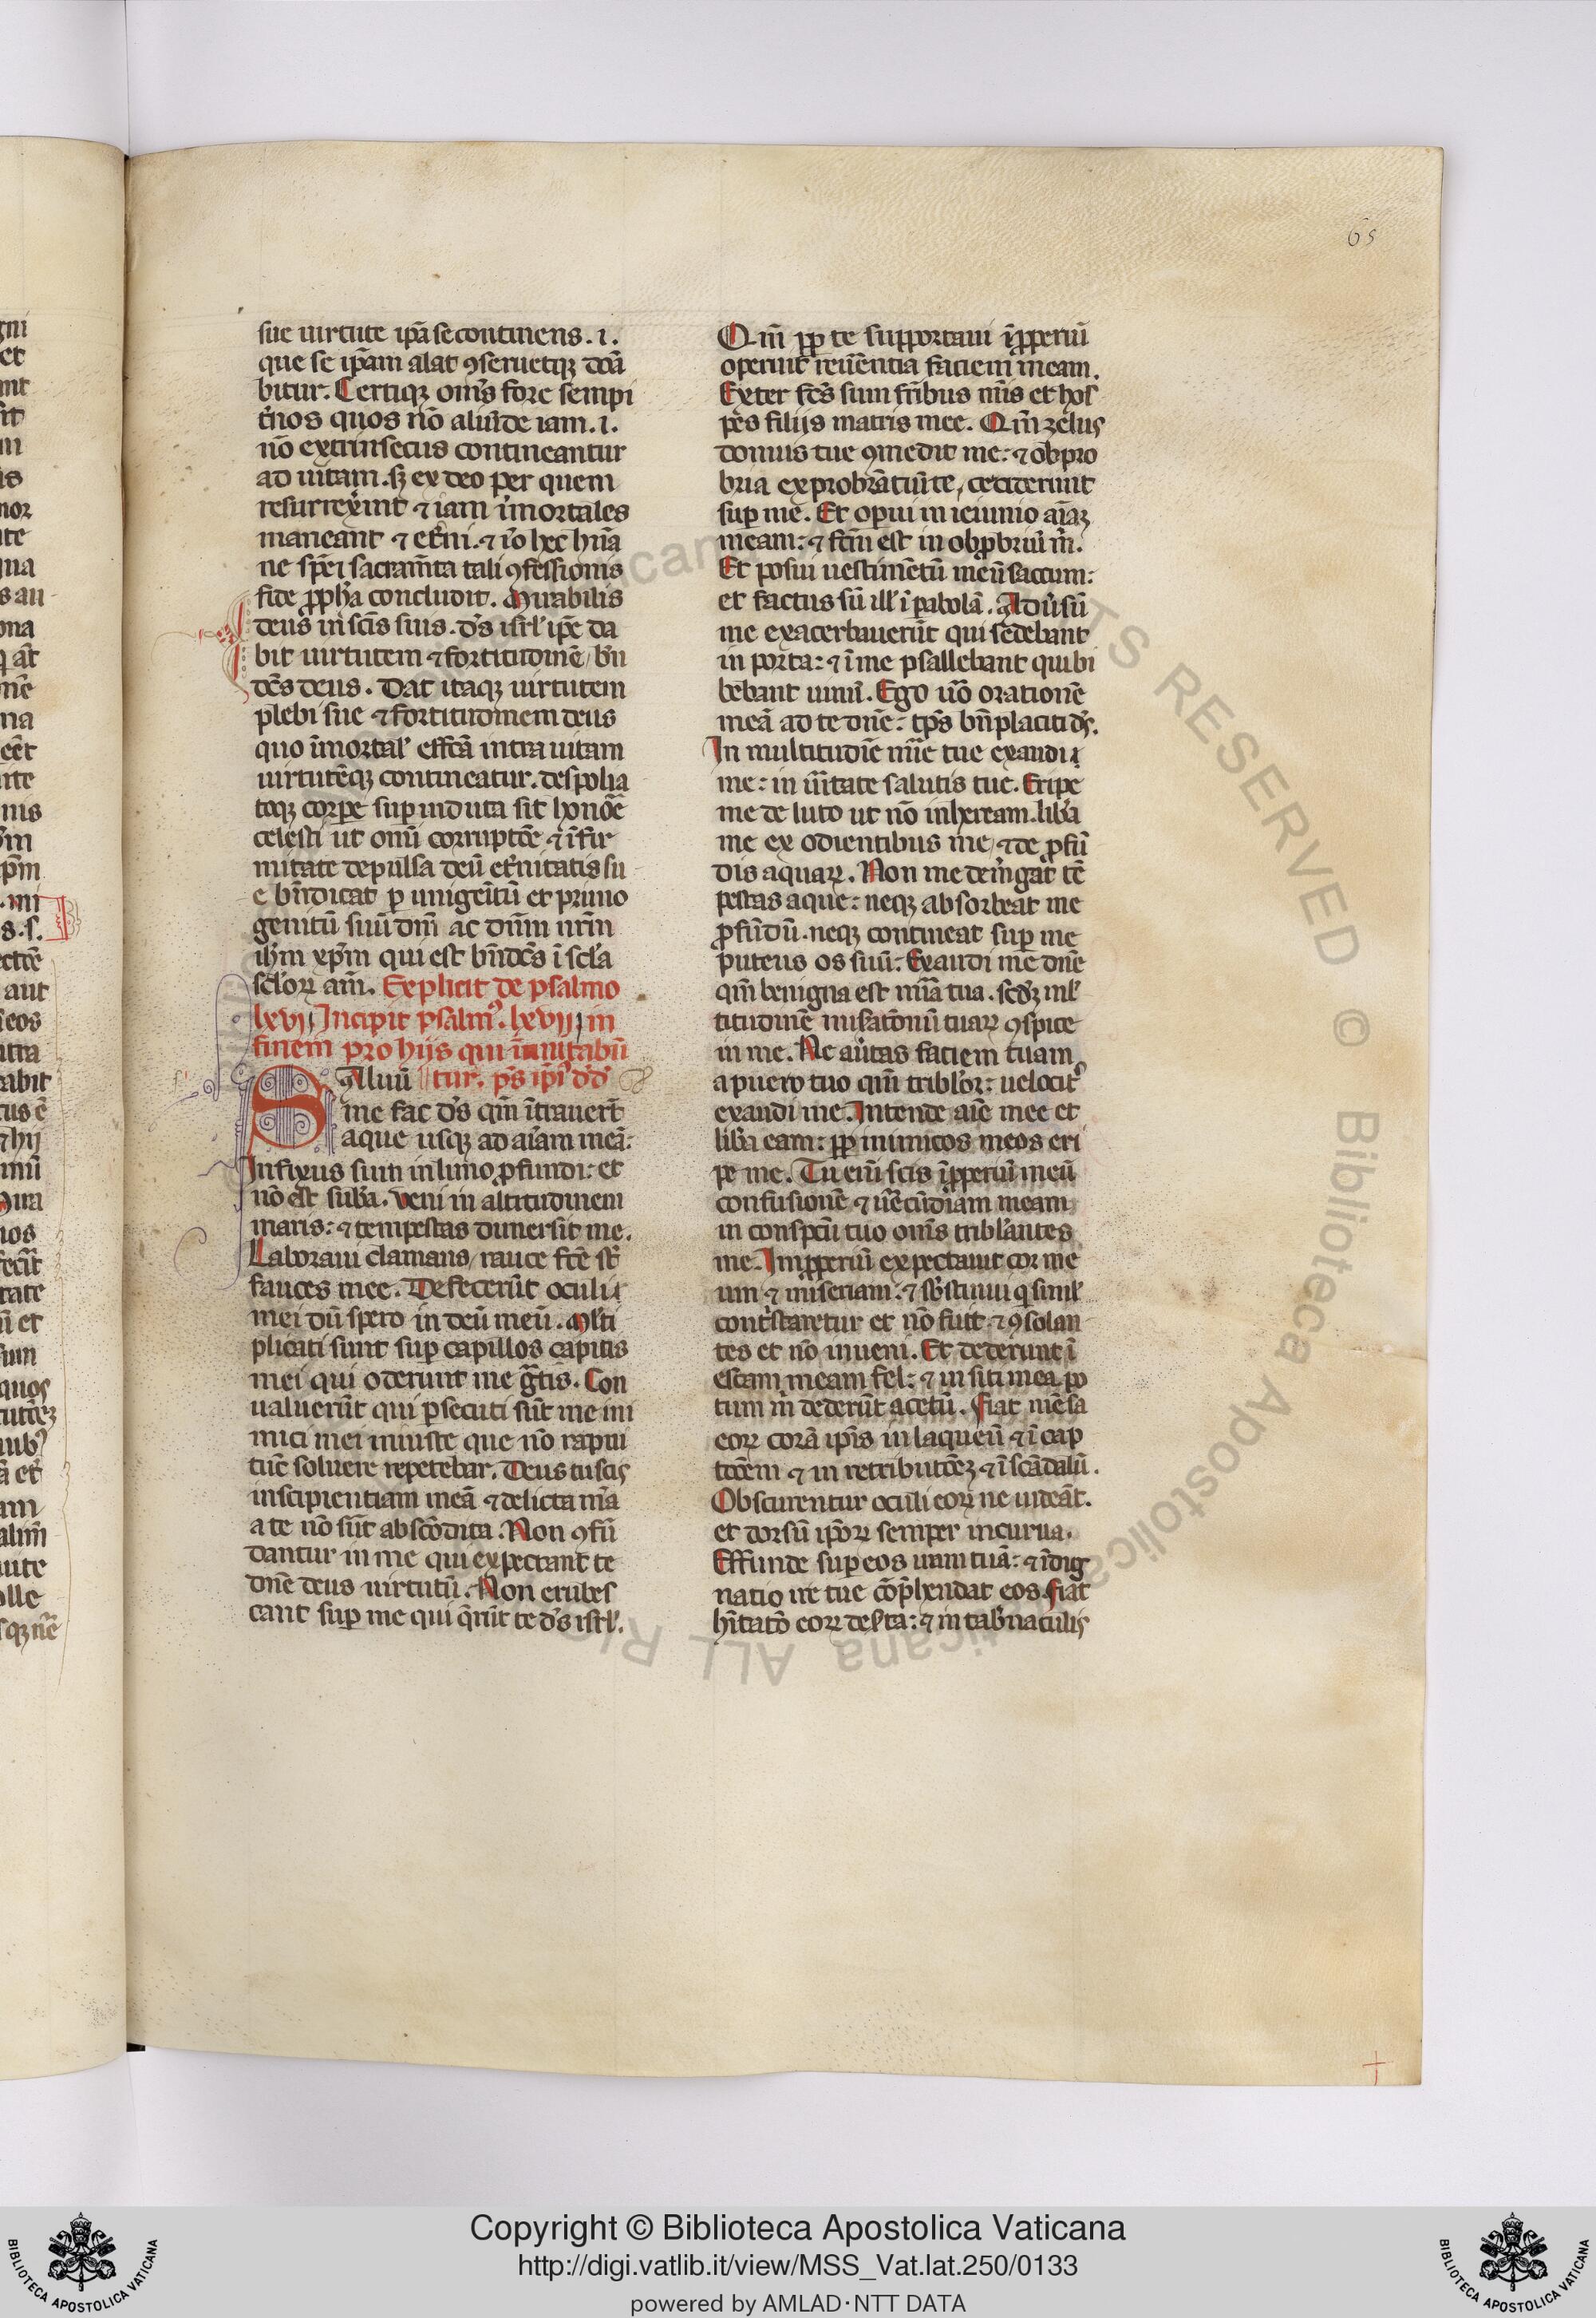 65
sue uirtute ip̃a se continens. i.
que se ip̃am alat ꝯseruetqꝫ docã
bitur. Certiqꝫ om̃s fore sempi
t̾nos quos nõ aliũde iam. i.
nõ extrinsecus contineantur
ad uitam. sꝫ ex deo per quem
resurrex̾int ⁊ iam ĩmortales
maneant ⁊ et̾ni. ⁊ iõ hec hũa
ne sp̃ei sacram̃ta tali ꝯfessionis
fide ꝓph̃a concludit. Mirabilis
deus in sc̃is suis. d̃s isrl̾ ip̃e da
bit uirtutem ⁊ fortitudinẽ, b̾n
dc̃s deus. Dat itaqꝫ uirtutem
plebi sue ⁊ fortitudinem deus
quo ĩmortal̾ effc̃a intra uitam
uirtutẽqꝫ contineatur. despolia
toqꝫ corꝑe suꝑinduta sit honoẽ
celesti ut omĩ corruptõe ⁊ ĩfir
mitate depulsa deũ et̾nitatis su
e bñdicat ꝑ unigeĩtũ et primo
genitũ suũ dm̃ ac dnm̃ nrm̃
ihm̃ xp̃m qui est bñdc̃s ĩ scl̾a
scl̾oꝝ am̃. Explicit de psalmo
lxvj. Incipit psalmꝰ. lxvij in
finem pro hijs qui ĩmutabũ
Aluũ tur. ps̃ ip̃i dd̾
me fac d̃s qm̃ ĩtrauer̃t
aque usqꝫ ad aĩam meã:
Infixus sum in limo ꝓfundi: et
nõ est subã. Veni in altitudinem
maris: ⁊ tempestas dimersit me.
Laboraui clamans, rauce fc̃e st̃
fauces mee. Defecer̃ut oculi
mei dũ spero in deũ meũ. Ml̾ti
plicati sunt suꝑ capillos capitis
mei qui oderunt me gr̃tis. Con
ualuer̃ut qui ꝑsecuti sũt me ini
mici mei iniuste que nõ rapui
tũc soluere repetebar. Deus tu scis
inscipientiam meã ⁊ delicta m̃a
a te nõ sũt abscõdita. Non ꝯfũ
dantur in me qui expectant te
dñe deus uirtutũ. Non erubes
cant suꝑ me qui q̃rũt te d̃s isrl̾.
Qm̃ ꝓp te supportaui ĩproperiũ
operuit reũentia faciem meam.
Exter fc̃s sum fr̃ibus m̃is et hos
pes filijs matris mee. Qm̃ zelus
domus tue ꝯmedit me: ⁊ obpro
bria exprobrãtiũ te, ceciderunt
suꝑ me. Et opui in ieiunio aĩaꝫ
meam: ⁊ fcm̃ est in obꝓbriũ m̃.
Et posui uestimẽtũ meũ saccum:
et factus sũ ill̾ ĩ pabolã. Adũsũ
me exacerbauer̃ut qui sedebant
in porta: ⁊ ĩ me psallebant qui bi
bebant uinũ. Ego ũo orationẽ
meã ad te dñe: tp̃s bñplaciti d̃s.
In multitudĩe mĩe tue exaudi
me: in ũitate salutis tue. Eripe
me de luto ut nõ inheream. lib̾a
me ex odientibus me, ⁊ de ꝓfũ
dis aquaꝝ. Non me dem̾gat tẽ
pestas aque: neqꝫ absorbeat me
ꝓfũdũ. neqꝫ contineat suꝑ me
puteus os suũ. Exaudi me dñe
qm̃ benigna est mĩa tua. scd̃ꝫ ml̾
titudinẽ misatõnũ tuaꝝ ꝯspice
in me. Ne aũtas faciem tuam
a puero tuo qm̃ tribl̾or: uelocit̾
exaudi me. Intende aĩe mee et
lib̾a eam: ꝓp inimicos meos eri
pe me. Tu enĩ scis ĩproperiũ meũ
confusionẽ ⁊ ũecũdiam meam
in conspcũ tuo om̃s tribl̾antes
me. Improperiũ expectauit cor me
um ⁊ miseriam: ⁊ sb̾stinui q̃ simĺ
cont̾staretur et nõ fuit ⁊ ꝯsolan
tes et nõ inueni. Et dederunt ĩ
escam meam fel: ⁊ in siti mea po
tum m̃ deder̃ut acetũ. Fiat mẽsa
eoꝝ corã ip̃is in laqueũ ⁊ ĩ cap
tõem ⁊ in retributõeꝫ ⁊ ĩ scãdalũ.
Obscurentur oculi eoꝝ ne uideãt.
et dorsũ ip̃oꝝ semper incurua.
Effunde suꝑ eos iram tuã: ⁊ ĩdig
natio ire tue cõp̃hendat eos. Fiat
hĩtatõ eoꝝ deserta: ⁊ in tab̾naculis
Copyright © Biblioteca Apostolica Vaticana
http://digi.vatlib.it/view/MSS_Vat.lat.250/0133
powered by AMLAD·NTT DATA